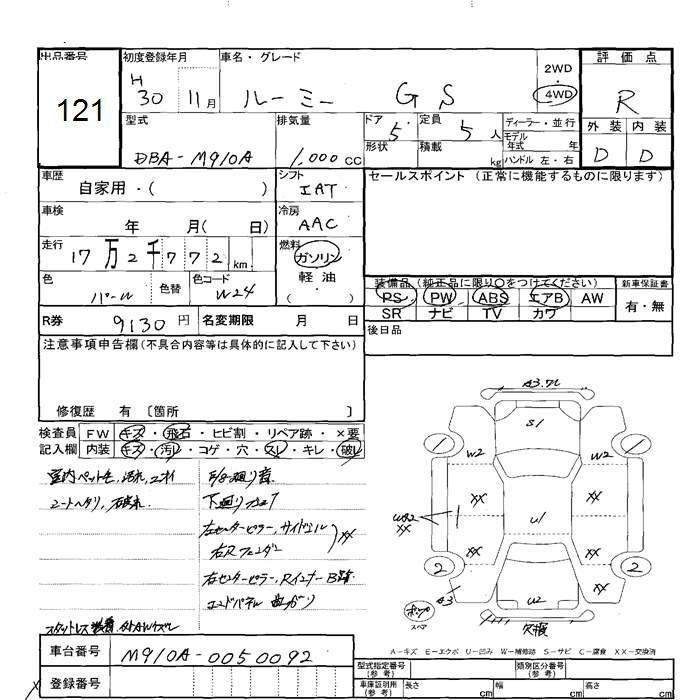 出品番号
121
初度登録年月
H
30 11月
車名・グレード
ルーミー GS
2WD
4WD
評価点
R
外装 内装
D D
型式
DBA-M910A
排気量
1,000cc
ドア 5
形状
定員 5人
積載 kg
ディーラー・並行
モデル年式 年
ハンドル 左・右
車歴
自家用・( )
シフト
IAT
セールスポイント (正常に機能するものに限ります)
車検
年 月( 日)
冷房
AAC
走行
17万2千772km
燃料
ガソリン
軽油
( )
色
パール
色替
色コード
W24
装備品 (純正品に限り○をつけてください)
PS PW ABS エアB AW
SR ナビ TV カワ
新車保証書
有・無
R券 9130円
名変期限 月 日
後日品
注意事項申告欄(不具合内容等は具体的に記入して下さい)
修復歴 有 〔箇所 〕
検査員 FW キズ・飛石・ヒビ割・リペア跡・×要
記入欄 内装 キズ・汚レ・コゲ・穴・スレ・キレ・破レ
シートヘタリ,
下廻り
左センターピラー,サイドシル
右Rフェンダー
XX
左センターピラー,Rインナー
エンドパネル 曲ガリ
スタットレス
A3
S1
W2
W2
XX
XX
XX
U1
XX
XX
2
2
A3
U2
欠損
スペア
A-キズ E-エクボ U-凹み W-補修跡 S-サビ C-腐食 XX-交換済
車台番号 M910A-0050092
登録番号
型式指定番号
(参考)
類別区分番号
(参考)
車庫証明用
(参考)
長さ cm 幅 cm 高さ cm